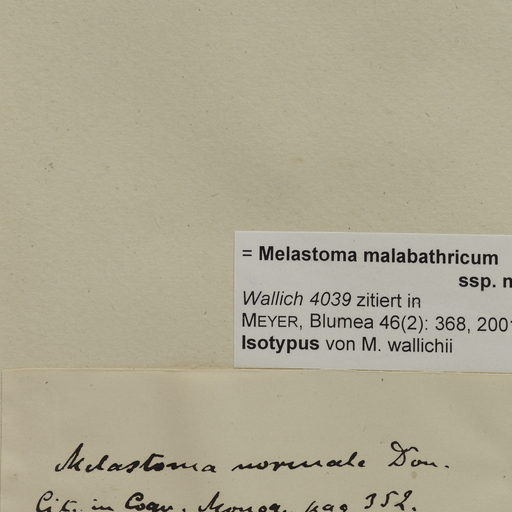 = Melastoma malabathricum
ssp. n
Wallich 4039 zitiert in
MEYER, Blumea 46(2): 368, 2001
Isotypus von M. wallichii
Melastoma normale Don.
Cit. in Cogn. Monog. pag 352.